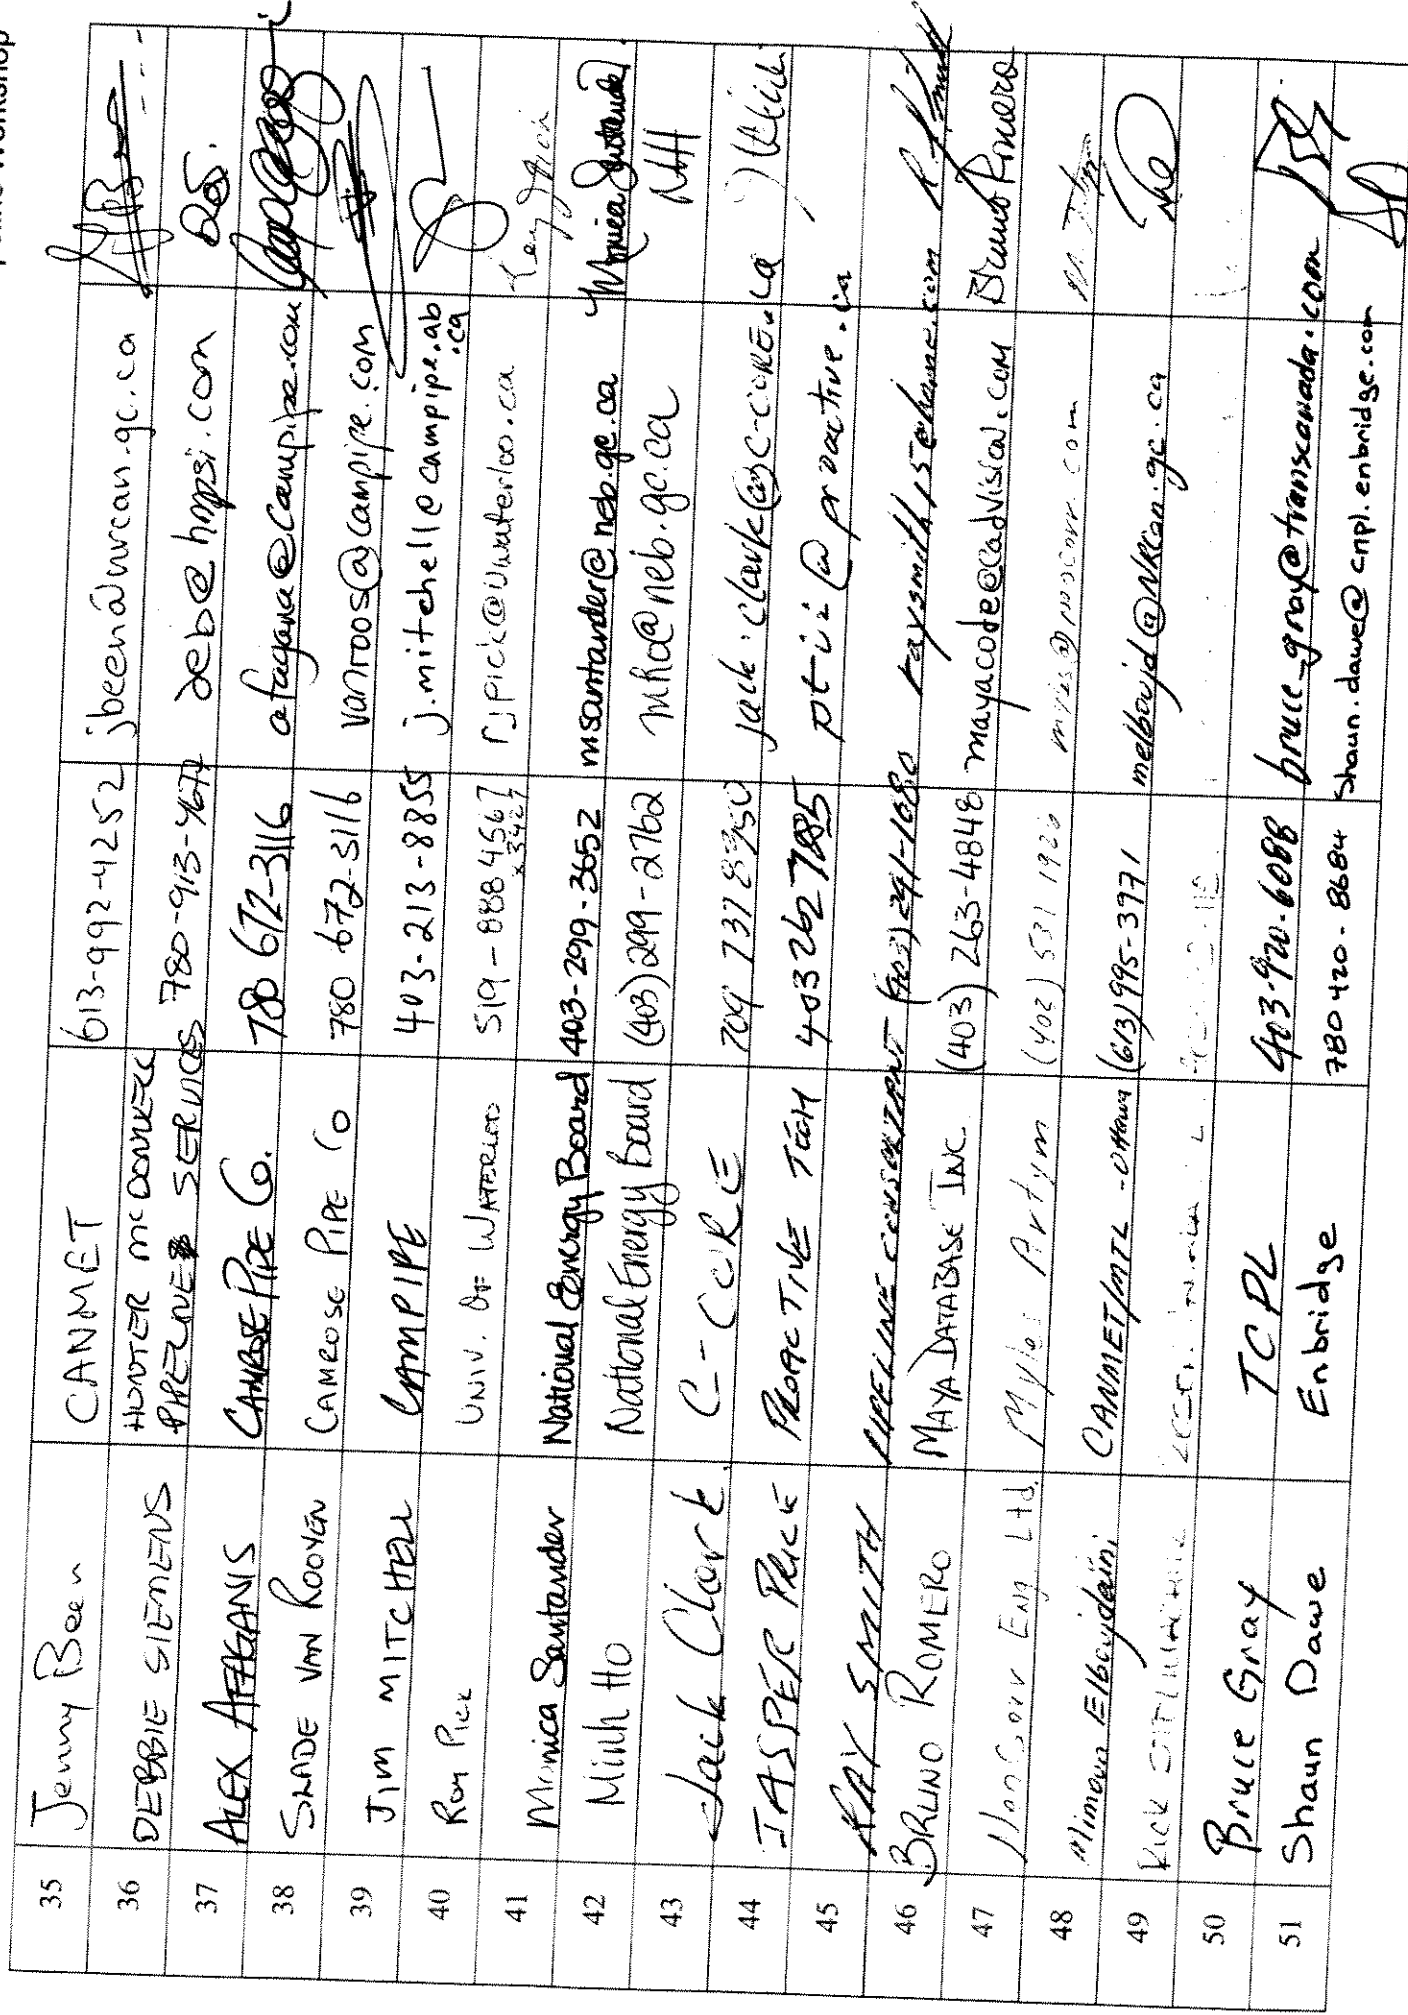 Workshop
35 Jenny Been CANMET 613-992-4252 jbeen@nrcan.gc.ca
36 DEBBIE SIEMENS HUNTER McDONNELL PIPELINE SERVICES 780-913-4677 deb@hmpsi.com DS.
37 ALEX AFAGANIS CAMROSE PIPE Co. 780 672-3116 afagana@campipe.com
38 SLADE VAN ROOYEN CAMROSE PIPE Co 780 672-3116 vanroos@campipe.com
39 JIM MITCHELL CAMPIPE 403-213-8855 j.mitchell@campipe.ab.ca
40 ROY PICK UNIV. OF WATERLOO 519-888 4567 x 3427 rjpick@uwaterloo.ca
41 Monica Santander National Energy Board 403-299-3652 msantander@neb.gc.ca Monica Santander
42 Minh Ho National Energy Board (403) 299-2762 mho@neb.gc.ca MH
43 Jack Clark C-CORE 709 737 8350 jack.clark@c-core.ca
44 JASPER PRICE PROACTIVE TECH 403 262 7885 pti@proactive.ca
45 RAY SMITH PIPELINE CONSULTANT (403) 241-1080 raysmith15@home.com
46 BRUNO ROMERO MAYA DATABASE INC. (403) 263-4848 mayacode@cadvision.com Bruno Romero
47 Eng Ltd. Myles Artym (403) 531 1926
48 Mimoun Elboujdaini CANMET/MTL - Ottawa (613) 995-3971 melboujd@NRCan.gc.ca
49 Rick
50 Bruce Gray TCPL 403-920-6088 bruce_gray@transcanada.com
51 Shaun Dawe Enbridge 780 420-8684 Shaun.dawe@cnpl.enbridge.com